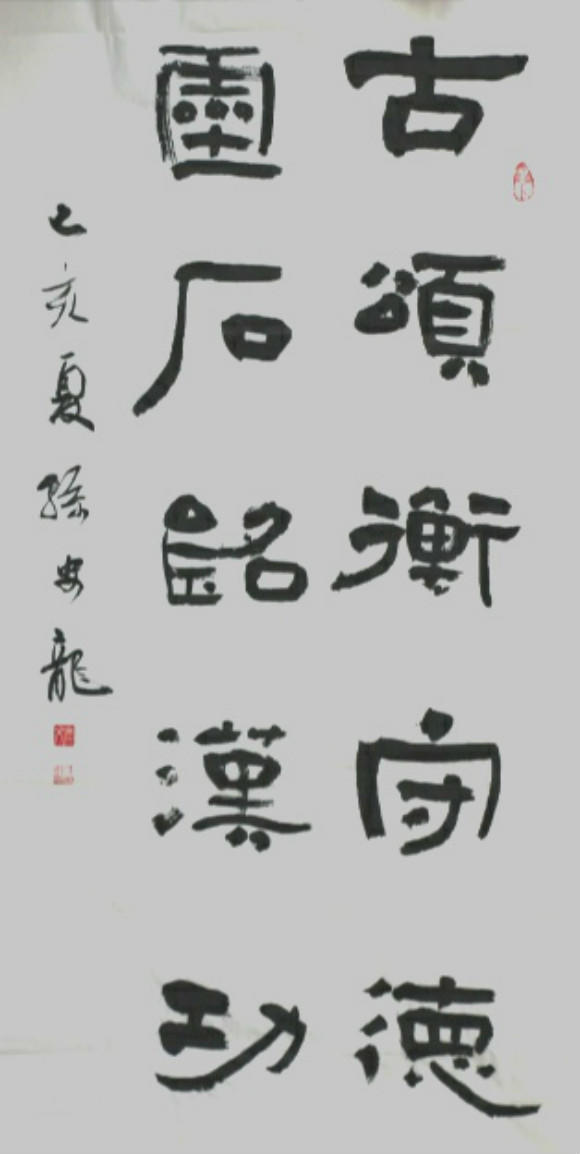 古頌衡守德
靈石銘漢功
己亥夏孫安龍